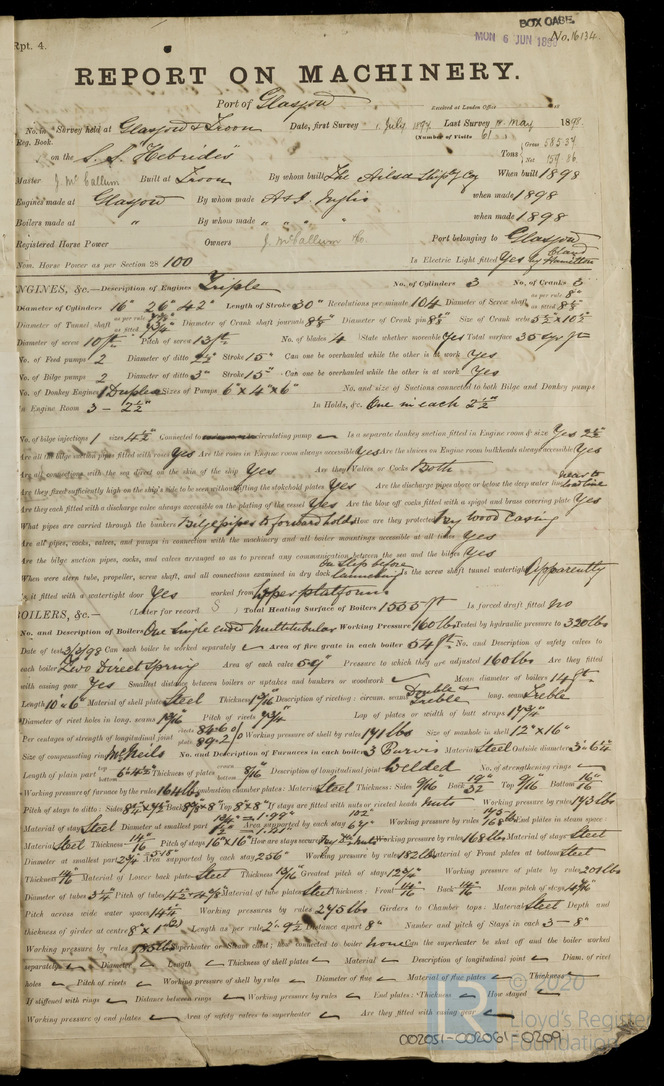 Rpt. 4.
BOX CASE.
MON 6 JUN 189
No. 16134
REPORT ON MACHINERY.
Port of Glasgow
Received at London Office 18
No. in Survey held at Glasgow & Troon Date, first Survey 1 July 1897 Last Survey May 1898.
Reg. Book. (Number of Visits 61
on the S.S. "Hebrides" Tons Gross 585.34 Net 159.86
Master J. McCallum Built at Troon By whom built The Ailsa Shipg Coy When built 1898
Engines made at Glasgow By whom made A & J Inglis when made 1898
Boilers made at " By whom made " " " when made 1898
Registered Horse Power Owners J. McCallum & Co. Port belonging to Glasgow
Nom. Horse Power as per Section 28 100 Is Electric Light fitted Yes by Hamilton
ENGINES, &c.—Description of Engines Triple No. of Cylinders 3 No. of Cranks 3
Diameter of Cylinders 16" 26" 42" Length of Stroke 30" Revolutions per minute 104 Diameter of Screw shaft as per rule 8" as fitted
Diameter of Tunnel shaft as per rule as fitted Diameter of Crank shaft journals Diameter of Crank pin Size of Crank webs
Diameter of screw 10 ft Pitch of screw 13 ft No. of blades 4 State whether moveable Yes Total surface 35 sq ft
No. of Feed pumps 2 Diameter of ditto Stroke 15" Can one be overhauled while the other is at work Yes
No. of Bilge pumps 2 Diameter of ditto 3" Stroke 15" Can one be overhauled while the other is at work Yes
No. of Donkey Engines 1 Duplex Sizes of Pumps 6" x 4" x 6" No. and size of Suctions connected to both Bilge and Donkey pumps
In Engine Room 3 - 2½" In Holds, &c. One in each 2½"
No. of bilge injections 1 sizes 4½ Connected to circulating pump Is a separate donkey suction fitted in Engine room & size Yes 2½
Are all the bilge suction pipes fitted with roses Yes Are the roses in Engine room always accessible Yes Are the sluices on Engine room bulkheads always accessible Yes
Are all connections with the sea direct on the skin of the ship Yes Are they Valves or Cocks Both
Are they fixed sufficiently high on the ship's side to be seen without lifting the stokehold plates Yes Are the discharge pipes above or below the deep water line near to load line
Are they each fitted with a discharge valve always accessible on the plating of the vessel Yes Are the blow off cocks fitted with a spigot and brass covering plate Yes
What pipes are carried through the bunkers Bilge pipes to forward holds How are they protected by wood casing
Are all pipes, cocks, valves, and pumps in connection with the machinery and all boiler mountings accessible at all times Yes
Are the bilge suction pipes, cocks, and valves arranged so as to prevent any communication between the sea and the bilges Yes
When were stern tube, propeller, screw shaft, and all connections examined in dry dock On Slip before launching Is the screw shaft tunnel watertight Apparently
Is it fitted with a watertight door Yes worked from Upper platform
BOILERS, &c.— (Letter for record S) Total Heating Surface of Boilers 1555 ft Is forced draft fitted No
No. and Description of Boilers One Single ended Multitubular Working Pressure 160 lbs Tested by hydraulic pressure to 320 lbs
Date of test 3/3/98 Can each boiler be worked separately Area of fire grate in each boiler 54 ft. No. and Description of safety valves to
each boiler Two Direct Spring Area of each valve Pressure to which they are adjusted 160 lbs Are they fitted
with easing gear Yes Smallest distance between boilers or uptakes and bunkers or woodwork Mean diameter of boilers 14 ft.
Length 10' 6" Material of shell plates Steel Thickness Description of riveting: circum. seams Double & Treble long. seams Treble
Diameter of rivet holes in long. seams Pitch of rivets Lap of plates or width of butt straps
Per centages of strength of longitudinal joint rivets plate Working pressure of shell by rules 171 lbs Size of manhole in shell 12" x 16"
Size of compensating ring McNeils No. and Description of Furnaces in each boiler 3 Purves Material Steel Outside diameter
Length of plain part top bottom Thickness of plates crown bottom Description of longitudinal joint Welded No. of strengthening rings
Working pressure of furnace by the rules 164 lbs Combustion chamber plates: Material Steel Thickness: Sides 9/16 Back 19/32 Top 9/16 Bottom
Pitch of stays to ditto: Sides Back Top 8" x 8" If stays are fitted with nuts or riveted heads Nuts Working pressure by rules 173 lbs
Material of stays Steel Diameter at smallest part Area supported by each stay Working pressure by rules End plates in steam space:
Material Steel Thickness Pitch of stays 16" x 16" How are stays secured Working pressure by rules 168 lbs Material of stays Steel
Diameter at smallest part Area supported by each stay 256" Working pressure by rules 182 lbs Material of Front plates at bottom Steel
Thickness Material of Lower back plate Steel Thickness Greatest pitch of stays Working pressure of plate by rules 201 lbs
Diameter of tubes 3¼ Pitch of tubes Material of tube plates Steel Thickness: Front Back Mean pitch of stays
Pitch across wide water spaces 14¼ Working pressures by rules 275 lbs Girders to Chamber tops: Material Steel Depth and
thickness of girder at centre Length as per rule Distance apart 8" Number and pitch of Stays in each 3 - 8"
Working pressure by rules Superheater or Steam chest; how connected to boiler None Can the superheater be shut off and the boiler worked
separately Diameter Length Thickness of shell plates Material Description of longitudinal joint Diam. of rivet
holes Pitch of rivets Working pressure of shell by rules Diameter of flue Material of flue plates Thickness
If stiffened with rings Distance between rings Working pressure by rules End plates: Thickness How stayed
Working pressure of end plates Area of safety valves to superheater Are they fitted with easing gear
LR © 2020
Lloyd's Register
Foundation
002051-002061-0209